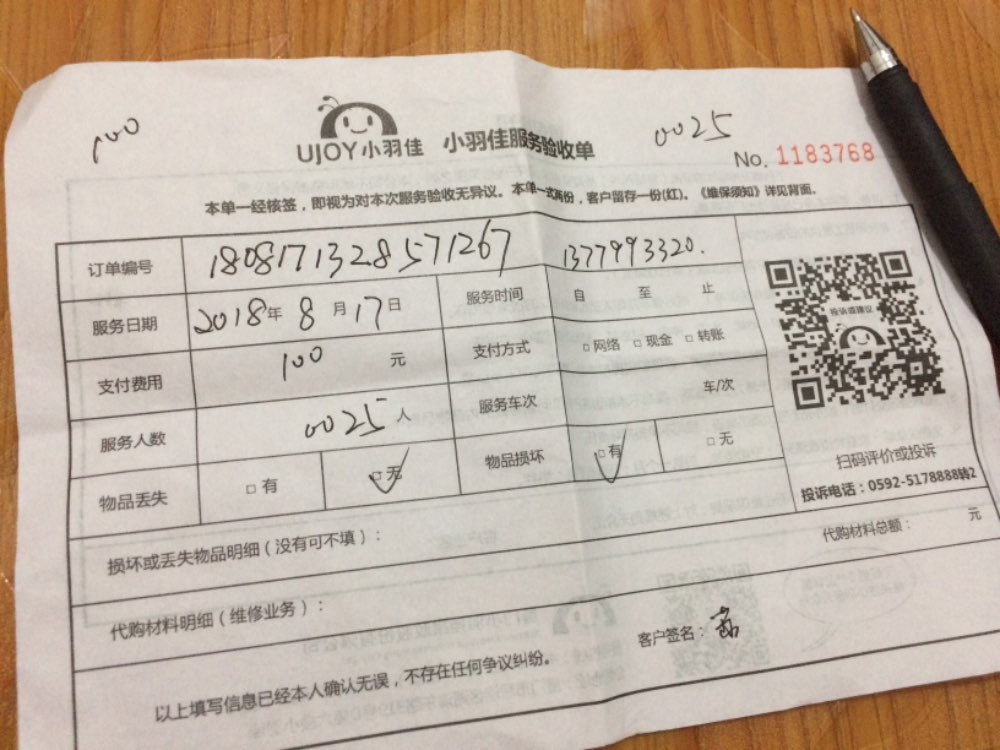 100
UJOY小羽佳 小羽佳服务验收单
0025
No. 1183768
本单一经核签，即视为对本次服务验收无异议。本单一式两份，客户留存一份(红)。《维保须知》详见背面。
订单编号 1808171328571267 1377993320.
服务日期 2018年 8 月 17 日 服务时间 自 至 止
支付费用 100 元 支付方式 □网络 □现金 □转账
服务人数 0025 人 服务车次 车/次
物品丢失 □有 □无 物品损坏 □有 □无
投诉或建议
扫码评价或投诉
投诉电话：0592-5178888转2
损坏或丢失物品明细（没有可不填）：
代购材料总额： 元
代购材料明细（维修业务）：
客户签名：
以上填写信息已经本人确认无误，不存在任何争议纠纷。